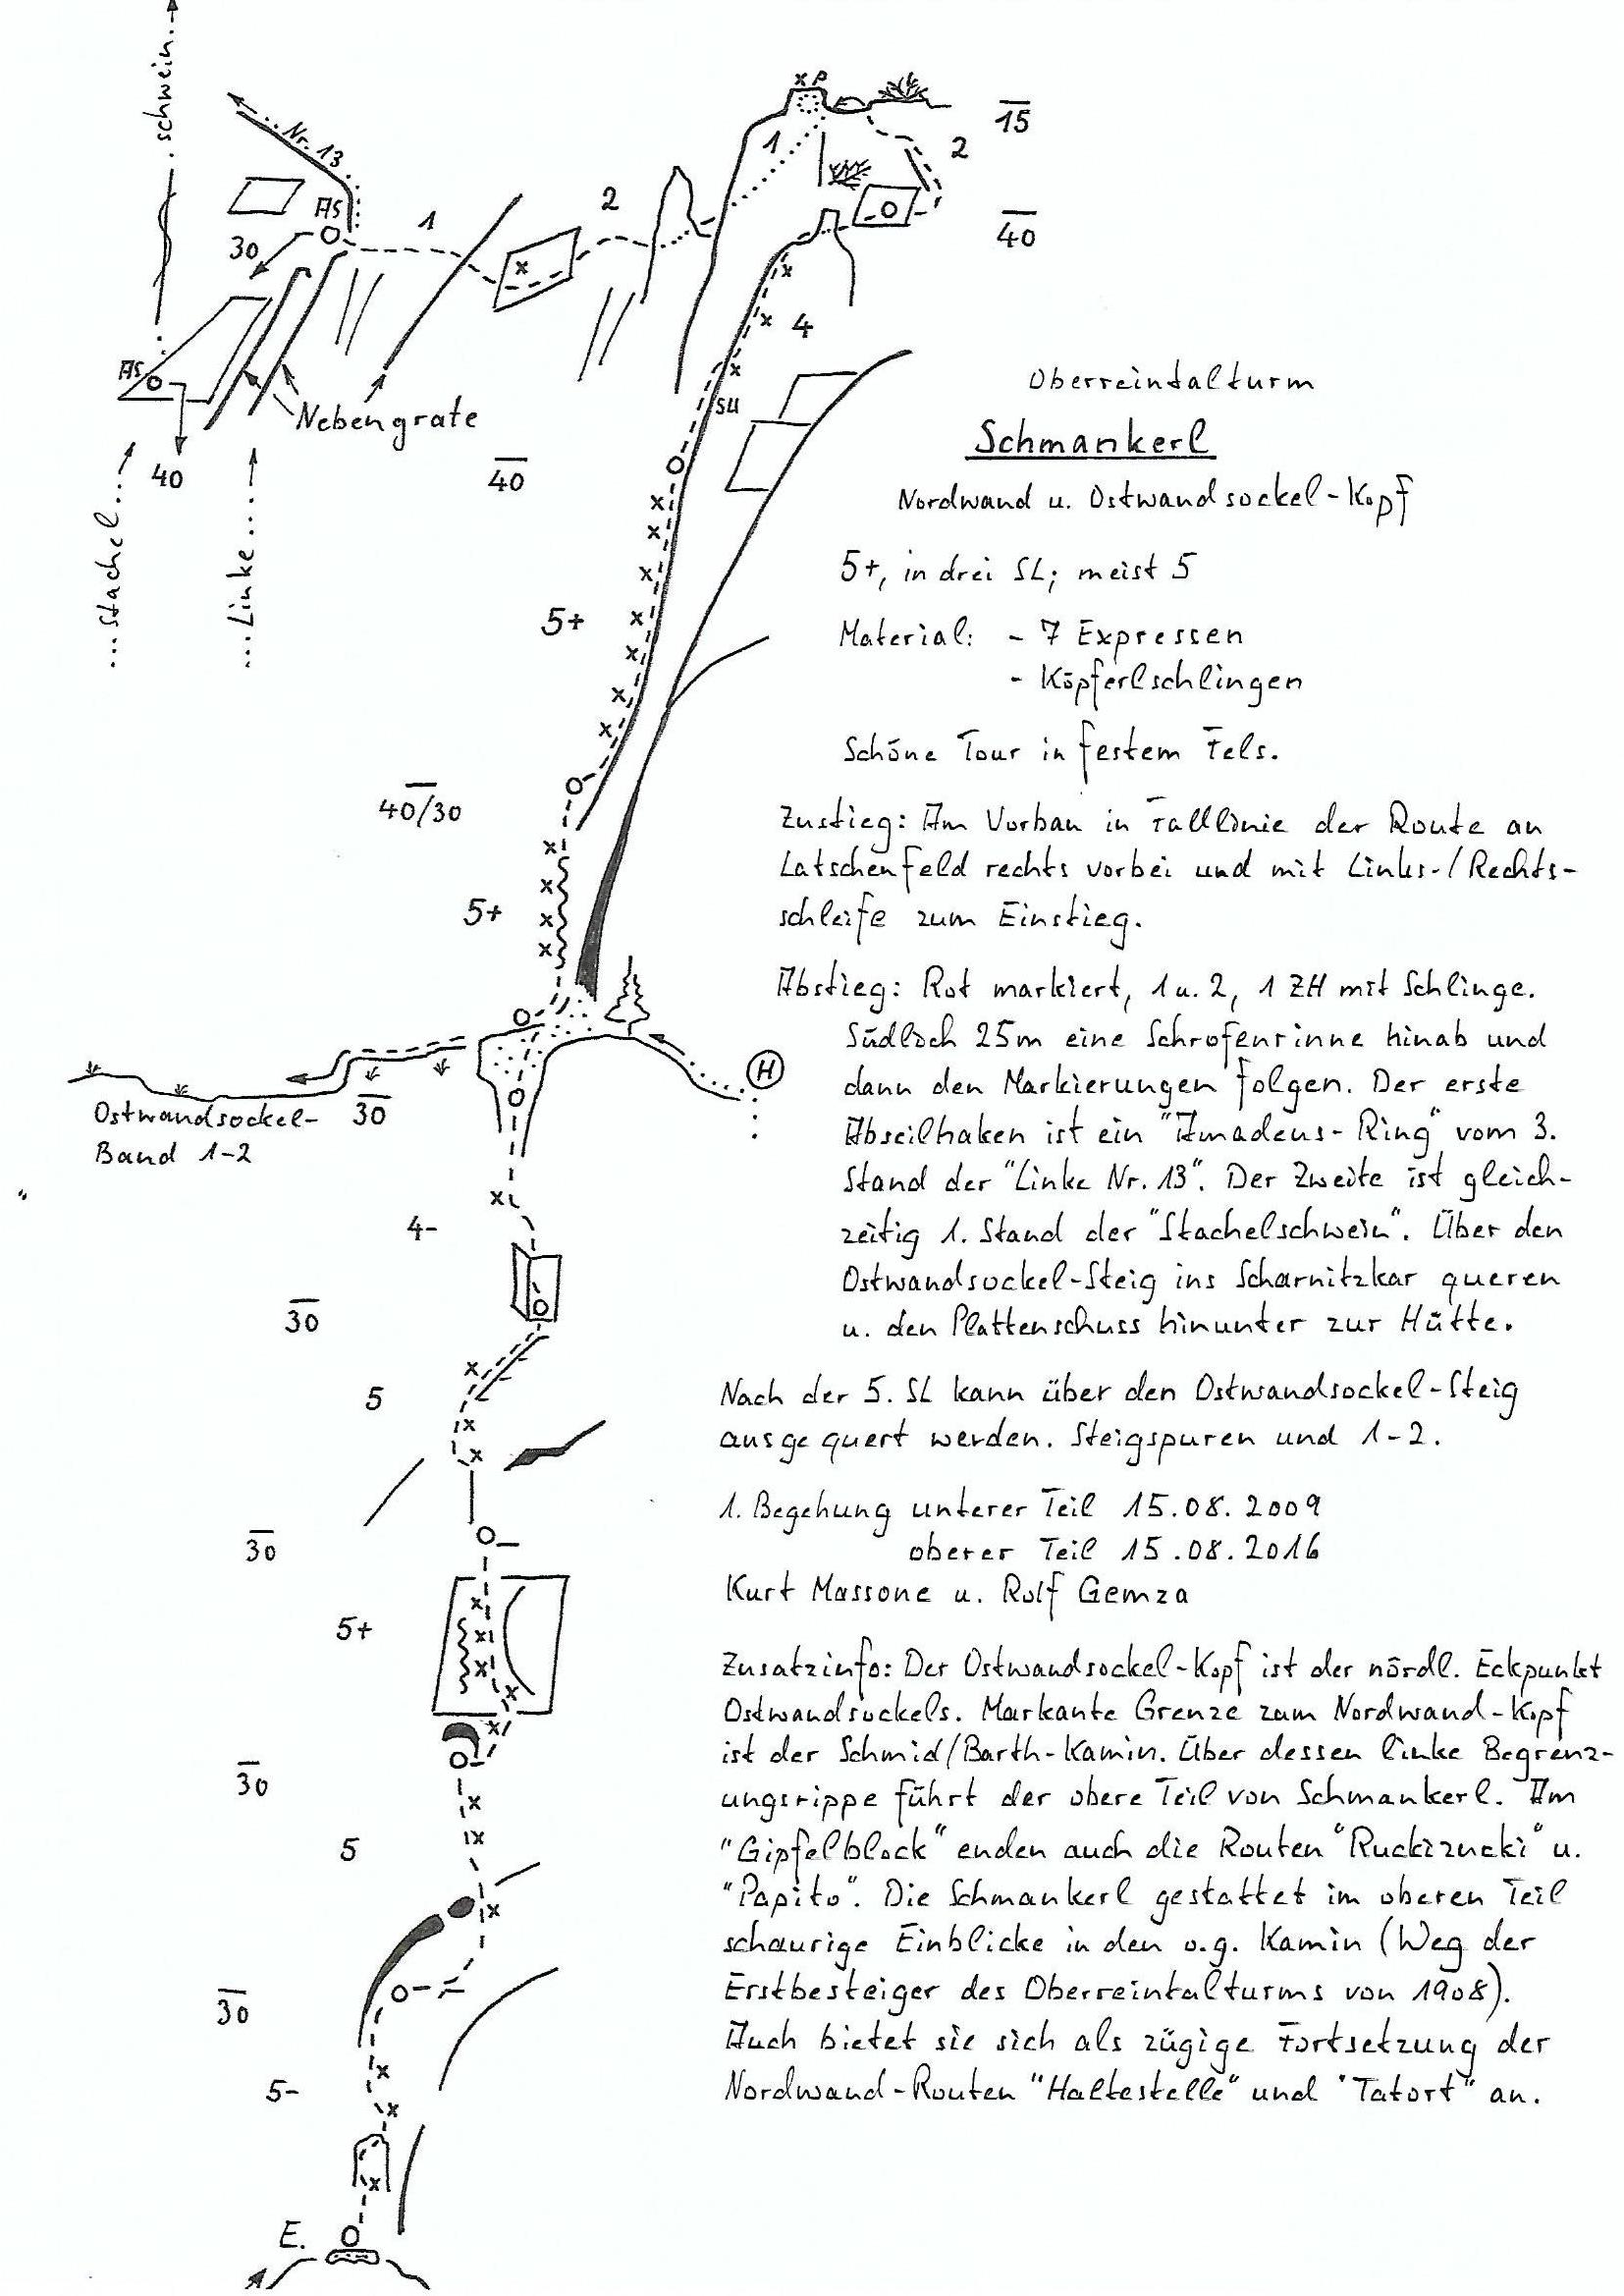 ...schwein...
xP
15
Nr. 13
1
2
AS
1
2
40
30
4
AS
SU
Nebengrate
40
40
...Stachel...
...Linke...
5+
40/30
5+
H
Ostwandsockel-
Band 1-2
30
4-
30
5
30
5+
30
5
30
5-
E.
Oberreintalturm
Schmankerl
Nordwand u. Ostwandsockel-Kopf
5+, in drei SL; meist 5
Material: - 7 Expressen
- Köpferlschlingen
Schöne Tour in festem Fels.
Zustieg: Am Vorbau in Falllinie der Route an
Latschenfeld rechts vorbei und mit Links-/Rechts-
schleife zum Einstieg.
Abstieg: Rot markiert, 1 u. 2, 1 ZH mit Schlinge.
Südlich 25m eine Schrofenrinne hinab und
dann den Markierungen folgen. Der erste
Abseilhaken ist ein "Amadeus-Ring" vom 3.
Stand der "Linke Nr. 13". Der Zweite ist gleich-
zeitig 1. Stand der "Stachelschwein". Über den
Ostwandsockel-Steig ins Scharnitzkar queren
u. den Plattenschuss hinunter zur Hütte.
Nach der 5. SL kann über den Ostwandsockel-Steig
ausgequert werden. Steigspuren und 1-2.
1. Begehung unterer Teil 15.08.2009
oberer Teil 15.08.2016
Kurt Massone u. Rolf Gemza
Zusatzinfo: Der Ostwandsockel-Kopf ist der nördl. Eckpunkt
Ostwandsockels. Markante Grenze zum Nordwand-Kopf
ist der Schmid/Barth-Kamin. Über dessen linke Begrenz-
ungsrippe führt der obere Teil von Schmankerl. Am
"Gipfelblock" enden auch die Routen "Ruckizucki" u.
"Papito". Die Schmankerl gestattet im oberen Teil
schaurige Einblicke in den o.g. Kamin (Weg der
Erstbesteiger des Oberreintalturms von 1908).
Auch bietet sie sich als zügige Fortsetzung der
Nordwand-Routen "Haltestelle" und "Tatort" an.